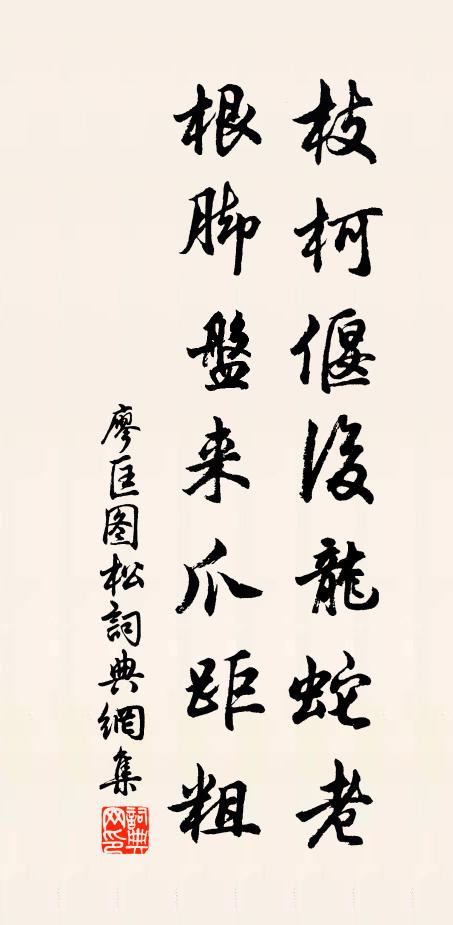 枝柯偃後龍蛇老
根脚盤来爪距粗
廖匡图松詞典網集
詞典网印